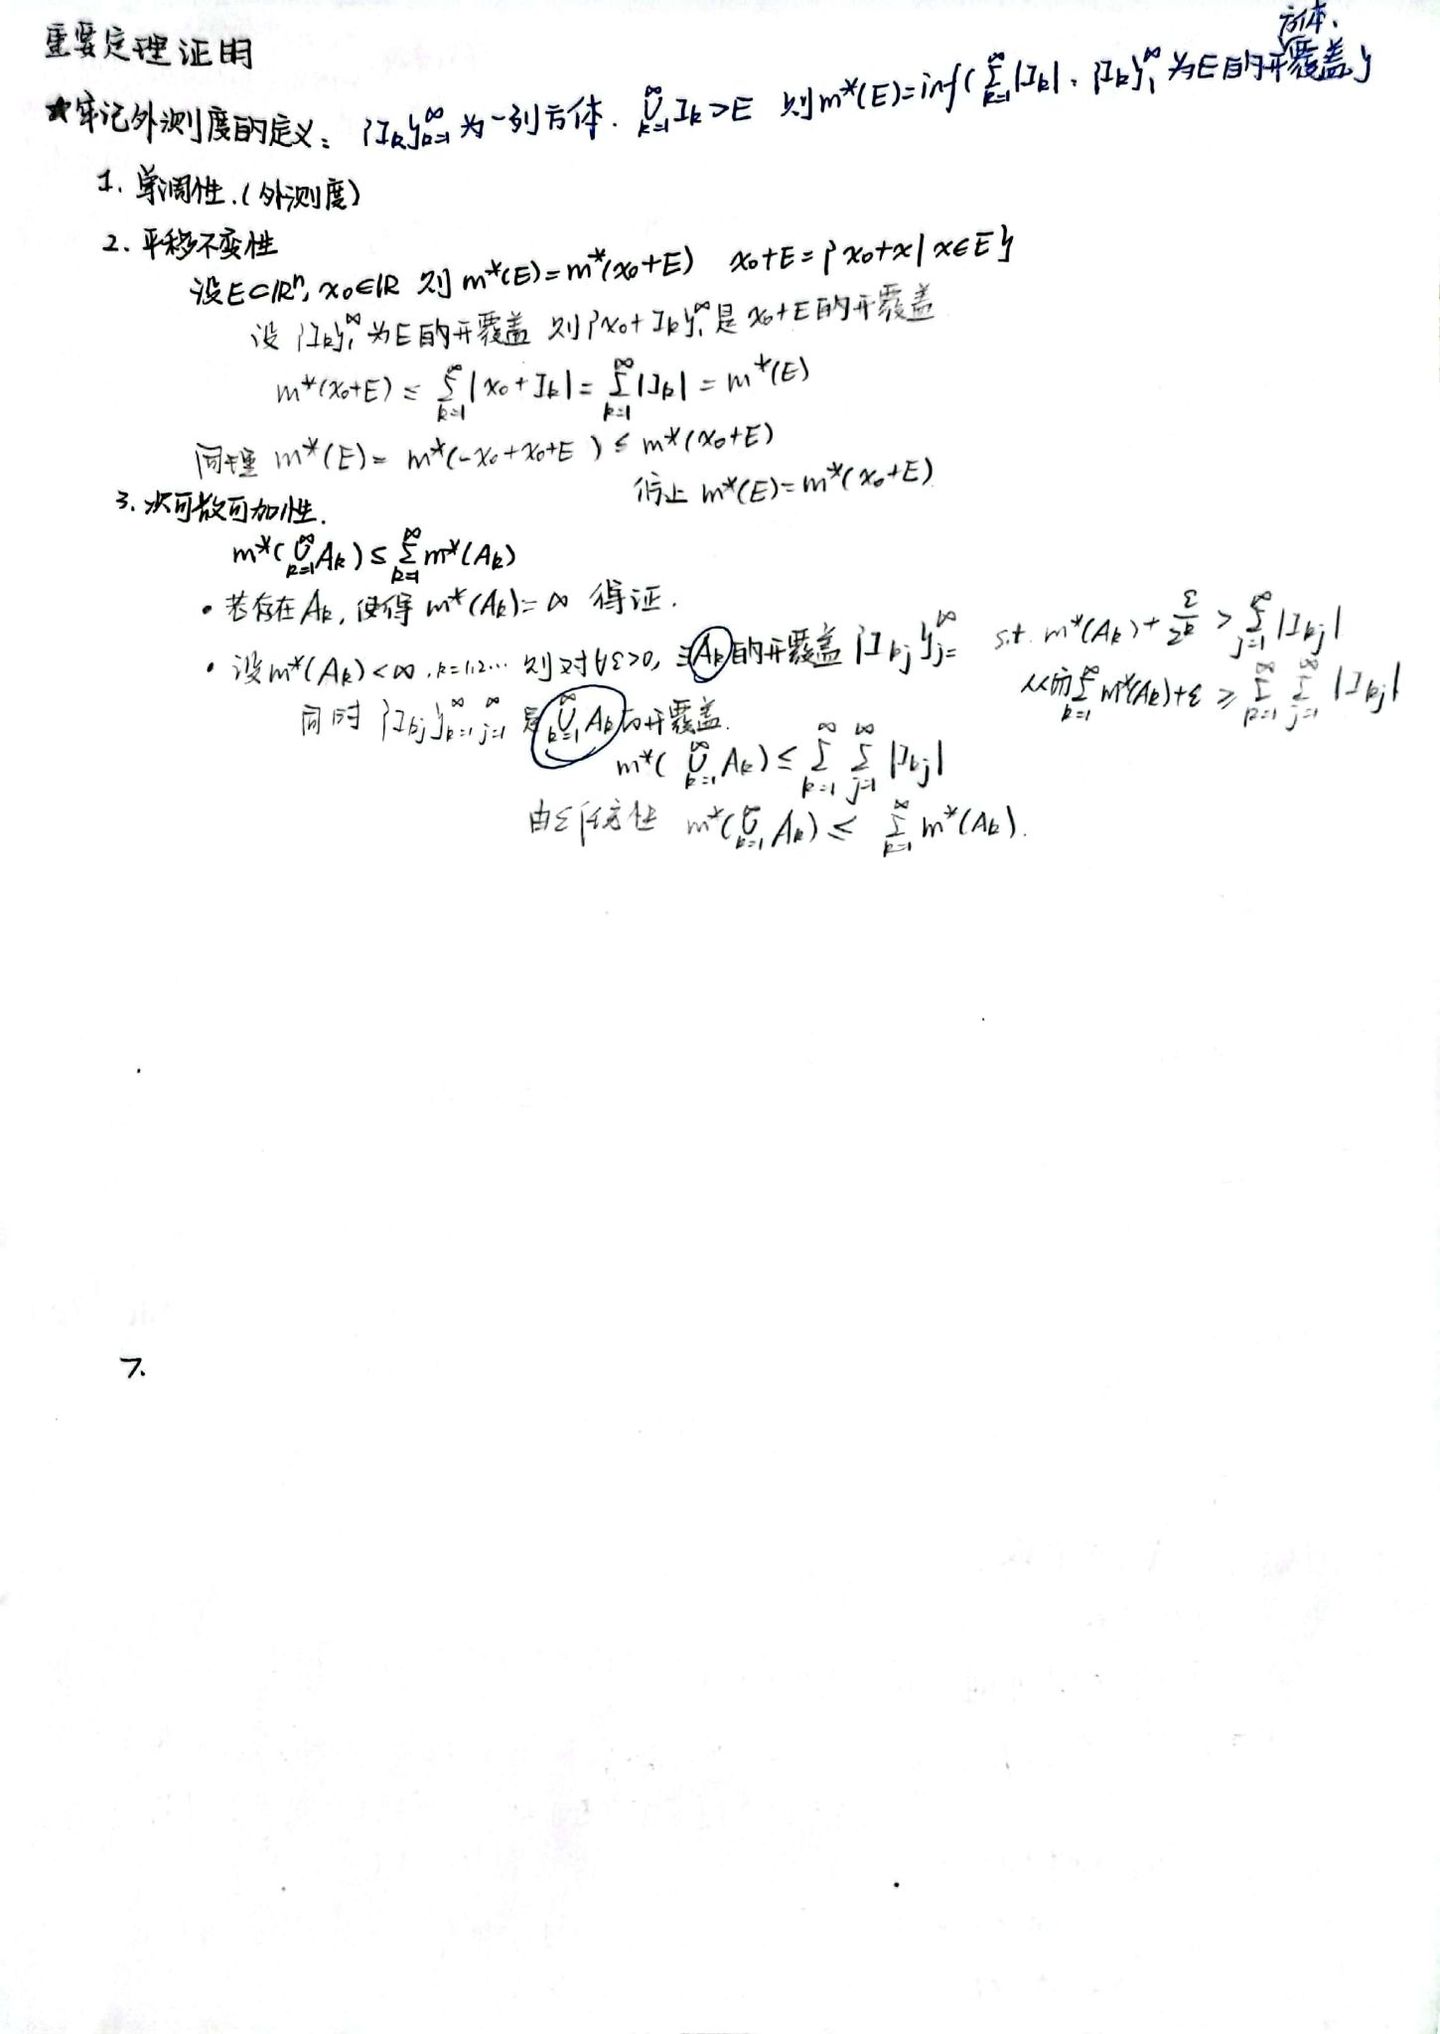 重要定理证明
方体.
★牢记外测度的定义: {I_k}_{k=1}^∞ 为一列方体. ∪_{k=1}^∞ I_k ⊃ E 则 m*(E)=inf{ ∑_{k=1}^∞ |I_k| : {I_k}_1^∞ 为E的开覆盖}
1. 单调性.(外测度)
2. 平移不变性
设E⊂ℝⁿ, x₀∈ℝ 则 m*(E)=m*(x₀+E) x₀+E={x₀+x | x∈E}
设 {I_k}_1^∞ 为E的开覆盖 则{x₀+I_k}_1^∞ 是 x₀+E的开覆盖
m*(x₀+E) ≤ ∑_{k=1}^∞ |x₀+I_k| = ∑_{k=1}^∞ |I_k| = m*(E)
同理 m*(E)= m*(-x₀+x₀+E) ≤ m*(x₀+E)
m*(E)=m*(x₀+E)
3. 次可数可加性.
m*(∪_{k=1}^∞ A_k) ≤ ∑_{k=1}^∞ m*(A_k)
• 若存在A_k, 使得 m*(A_k)=∞ 得证.
• 设m*(A_k)<∞, k=1,2… 则对∀ε>0, ∃A_k的开覆盖 {I_{kj}}_{j=}^∞ s.t. m*(A_k)+ε/2^k > ∑_{j=1}^∞ |I_{kj}|
从而∑_{k=1}^∞ m*(A_k)+ε ≥ ∑_{k=1}^∞ ∑_{j=1}^∞ |I_{kj}|
同时 {I_{kj}}_{k=1}^∞ {}_{j=1}^∞ 是 ∪_{k=1}^∞ A_k 的开覆盖.
m*( ∪_{k=1}^∞ A_k) ≤ ∑_{k=1}^∞ ∑_{j=1}^∞ |I_{kj}|
由ε任意性 m*(∪_{k=1}^∞ A_k) ≤ ∑_{k=1}^∞ m*(A_k).
7.